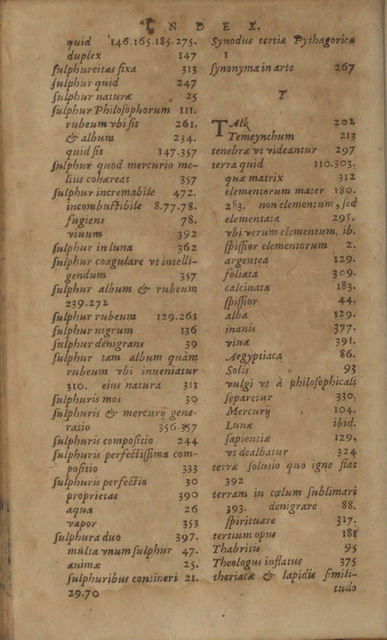 INDEX.
quid 146.165.185.275.
duplex 147
sulphureitas fixa 313
sulphur quid 247
sulphur naturæ 25
sulphur Philosophorum 111.
rubeum vbi sit 261.
& album 234.
quid sit 147.357
sulphur quod mercurio me-
lius cohæreat 357
sulphur incremabile 472.
incombustibile 8.77.78.
fugiens 78.
viuum 392
sulphur in luna 362
sulphur coagulare vt intelli-
gendum 357
sulphur album & rubeum
239.272
sulphur rubeum 129.261
sulphur nigrum 136
sulphur denigrans 39
sulphur tam album quàm
rubeum vbi inueniatur
310. eius natura 311
sulphuris mos 30
sulphuris & mercurij gene-
ratio 356.357
sulphuris compositio 244
sulphuris perfectissima com-
positio 333
sulphuris perfectio 30
proprietas 390
aqua 26
vapor 353
sulphura duo 397.
multa vnum sulphur 47.
animæ 25.
sulphuribus contineri 21.
29.70
Synodus tertia Pythagorica
1
synonyma in arte 267
T
TAlk 202
Temeynchum 213
tenebræ vt videantur 297
terra quid 110.303.
quæ matrix 312
elementorum mater 180.
283. non elementum, sed
elementata 295.
vbi verum elementum. ib.
spissior elementorum 2.
argentea 129.
foliata 309.
calcinata 183.
spissior 44.
alba 129.
inanis 377.
viua 391.
Aegyptiaca 86.
Solis 93
vulgi vt à philosophicali
separetur 330.
Mercurij 104.
Lunæ ibid.
sapientiæ 129.
vt dealbatur 324
terræ solutio quo igne fiat
392
terram in cœlum sublimari
393. denigrare 88.
spirituare 317.
tertium opus 181
Thabritis 95
Theologus inflatus 375
theriacæ & lapidis simili-
tudo